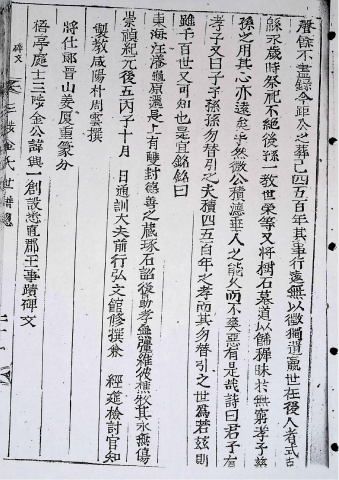 聲餘不盡錄今距公之葬已四五百年其事行遠無以徵獨遺風世在後人者式克
餘永歲時祭祀不絕後孫一教世榮等又將樹石墓道以餙禪昧於無窮孝子慈
孫之用其心亦遠矣乎然微公積德垂人之能久而不衰惡有是哉詩曰君子有
孝子又曰子子孫孫勿替引之夫積四五百年之孝而其勿替引之世爲若玆則
雖千百世又可知也是宜銘銘曰
東海汪藩龜原邐是上有雙封德善之藏琢石詔後勖孝無彊維彼樵牧其永無傷
崇禎紀元後五丙子十月 日通訓大夫前行弘文館修撰兼 經筵檢討官知
製敎咸陽朴周雲撰
將仕郞晋山姜厦重篆分
梧亭處士三陟金公諱興一創設悉直郡王事蹟碑文
碑文